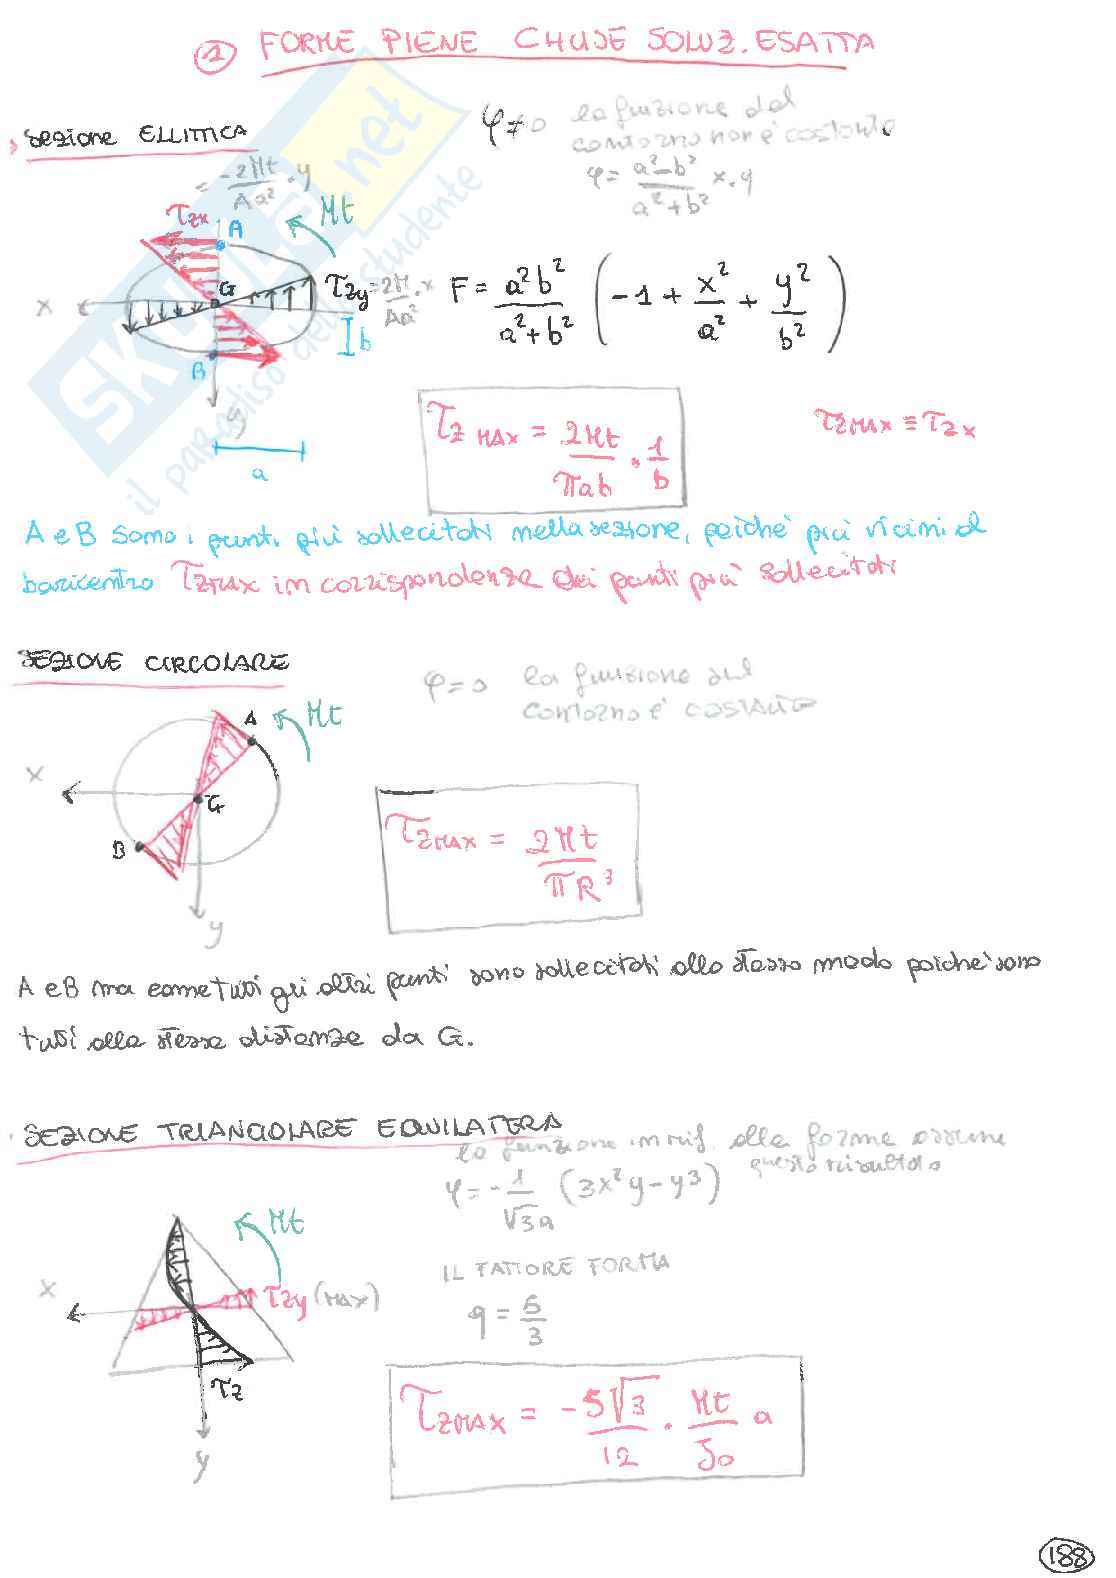 ① FORME PIENE CHIUSE SOLUZ. ESATTA
SEZIONE ELLITTICA
φ≠0 la funzione del
contorno non è costante
φ = a²-b² / a²+b² x·y
= -2Mt / Aa² · y
τzx
A
Mt
G
x
τzy = 2M / Aa² · x
F = a²b² / a²+b² ( -1 + x²/a² + y²/b² )
b
B
y
a
τz MAX = 2Mt / πab · 1/b
τzMAX ≡ τzx
A e B sono i punti più sollecitati nella sezione, poiché più vicini al
baricentro τzMAX in corrispondenza dei punti più sollecitati
SEZIONE CIRCOLARE
φ=0 la funzione sul
contorno è COSTANTE
A
Mt
x
G
B
y
τzMAX = 2Mt / πR³
A e B ma come tutti gli altri punti sono sollecitati allo stesso modo poiché sono
tutti alla stessa distanza da G.
SEZIONE TRIANGOLARE EQUILATERA
la funzione in rif. alla forma assume
questo risultato
φ = - 1/√3a (3x²y-y³)
Mt
x
τzy (MAX)
IL FATTORE FORMA
q = 5/3
τz
y
τzMAX = -5√3 / 12 · Mt / J0 a
188
SKUOLA.net
il paradiso dello studente